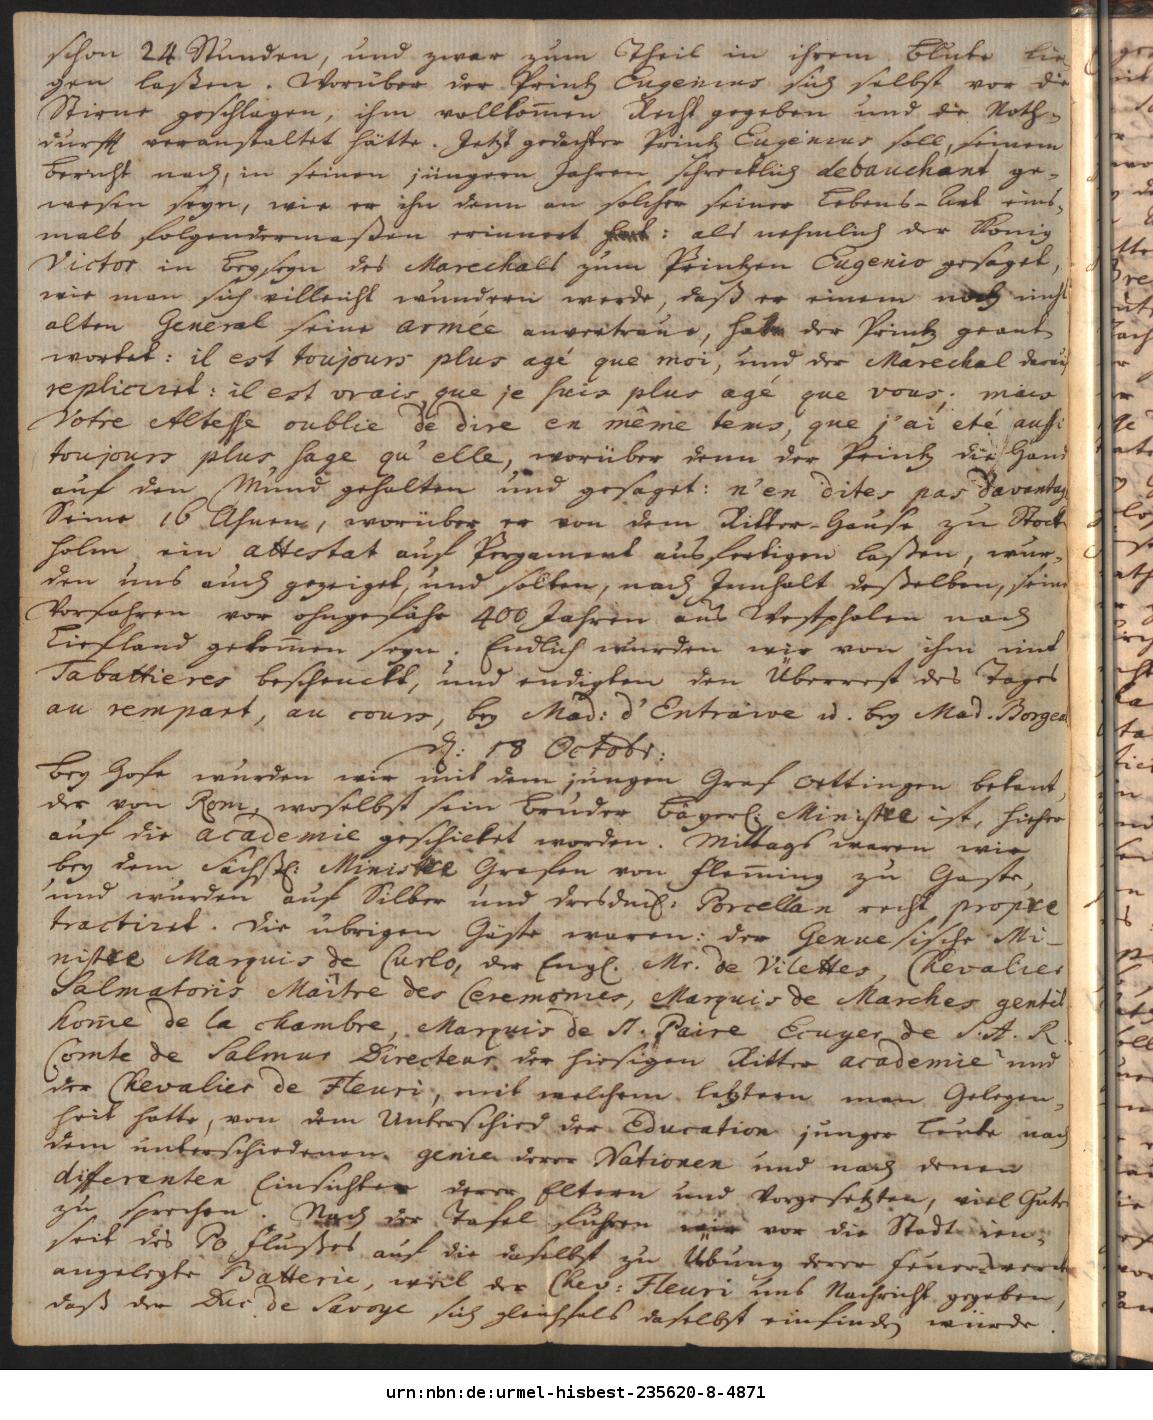 schon 24 Stunden, und zwar zum Theil in ihrem Blute lie
gen laßen. Worüber der Printz Eugenius sich selbst vor die
Stirne geschlagen, ihm vollkom̄en Recht gegeben und die Noth-
durfft veranstaltet hätte. Jetzt gedachter Printz Eugenius soll, seinem
Bericht nach, in seinen jüngern Jahren schrecklich debauchant ge-
wesen seyn, wie er ihn denn an solcher seiner Lebens-Art eins-
mals folgendermaßen erinnert : als nehmlich der König
Victor in Beyseyn des Marechals zum Printzen Eugenio gesaget,
wie man sich villeicht wundern werde, daß er einem noch nicht
alten General seine armée anvertraue, habe der Printz geant
wortet: il est toujours plus agé que moi, und der Marechal darauf
repliciret: il est vrais que je suis plus agé que vous; mais
Votre Altesse oublie de dire en même tems, que j'ai eté aussi
toujours plus sage qu'elle, worüber denn der Printz die Hand
auf den Mund gehalten und gesaget: n'en dites pas davantag
Seine 16 Ahnen, worüber er von dem Ritter-Hause zu Stock
holm ein attestat auf Pergament ausfertigen laßen, wur-
den uns auch gezeiget, und sollten, nach Innhalt deßelben, seine
Vorfahren vor ohngefähr 400 Jahren aus Westphalen nach
Liefland gekom̄en seyn. Endlich wurden wir von ihm mit
Tabattieres beschenckt, und endigten den Überrest des Tages
au rempart, au cours, bey Mad: d'Entraive u. bey Mad. Borgea
d: 18 Octobr:
Bey Hofe wurden wir mit dem jungen Graf Oettingen bekant,
der von Rom, woselbst sein Bruder Bayerl: Ministre ist, hieher
auf die academie geschicket worden. Mittags waren wir
bey dem Sächßl: Ministre Grafen von Flem̄ing zu Gaste,
und wurden auf Silber und dresdnl: Porcellan recht propre
tractiret. Die übrigen Gäste waren: der Genuesische Mi-
nistre Marquis de Curlo, der Engl. Mr. de Vilettes, Chevalier
Salmatoris Maître des Ceremonies, Marquis de Marches gentil
hom̄e de la chambre, Marquis de St. Paire Ecuyer de S. A. R.
Comte de Salmur Directeur der hiesigen Ritter academie und
der Chevalier de Fleuri, mit welchem letztern man Gelegen-
heit hatte, von dem Unterschied der Education junger Leute nach
dem unterschiedenen genie derer Nationen und nach denen
differenten Einsichten derer Eltern und Vorgesetzten, viel Gute
zu sprechen. Nach der Tafel fuhren wir vor die Stadt jen-
seit des Po Flußes auf die daselbst zu Übung derer Feuer-werck
angelegte Batterie, weil der Chev: Fleuri uns Nachricht gegeben,
daß der Duc de Savoye sich gleichfals daselbst einfinden würde.
urn:nbn:de:urmel-hisbest-235620-8-4871